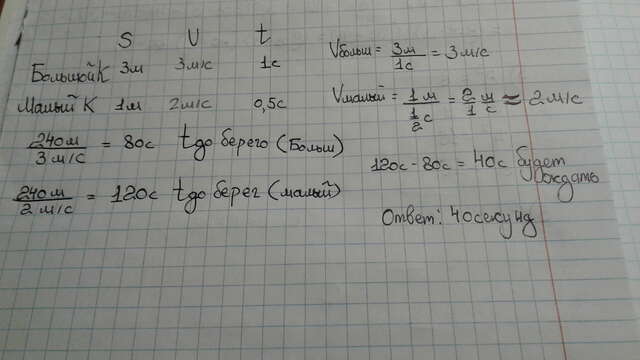 S V t
Большой К 3м 3м/с 1с
Малый К 1м 2м/с 0,5с
240м / 3м/с = 80с t до берего (Больш)
240м / 2м/с = 120с t до берег (малый)
Vбольш = 3м / 1с = 3м/с
Vмалый = 1м / 1/2 с = 2/1 м/с ≈ 2м/с
120с - 80с = 40с будет
ждать
Ответ: 40секунд